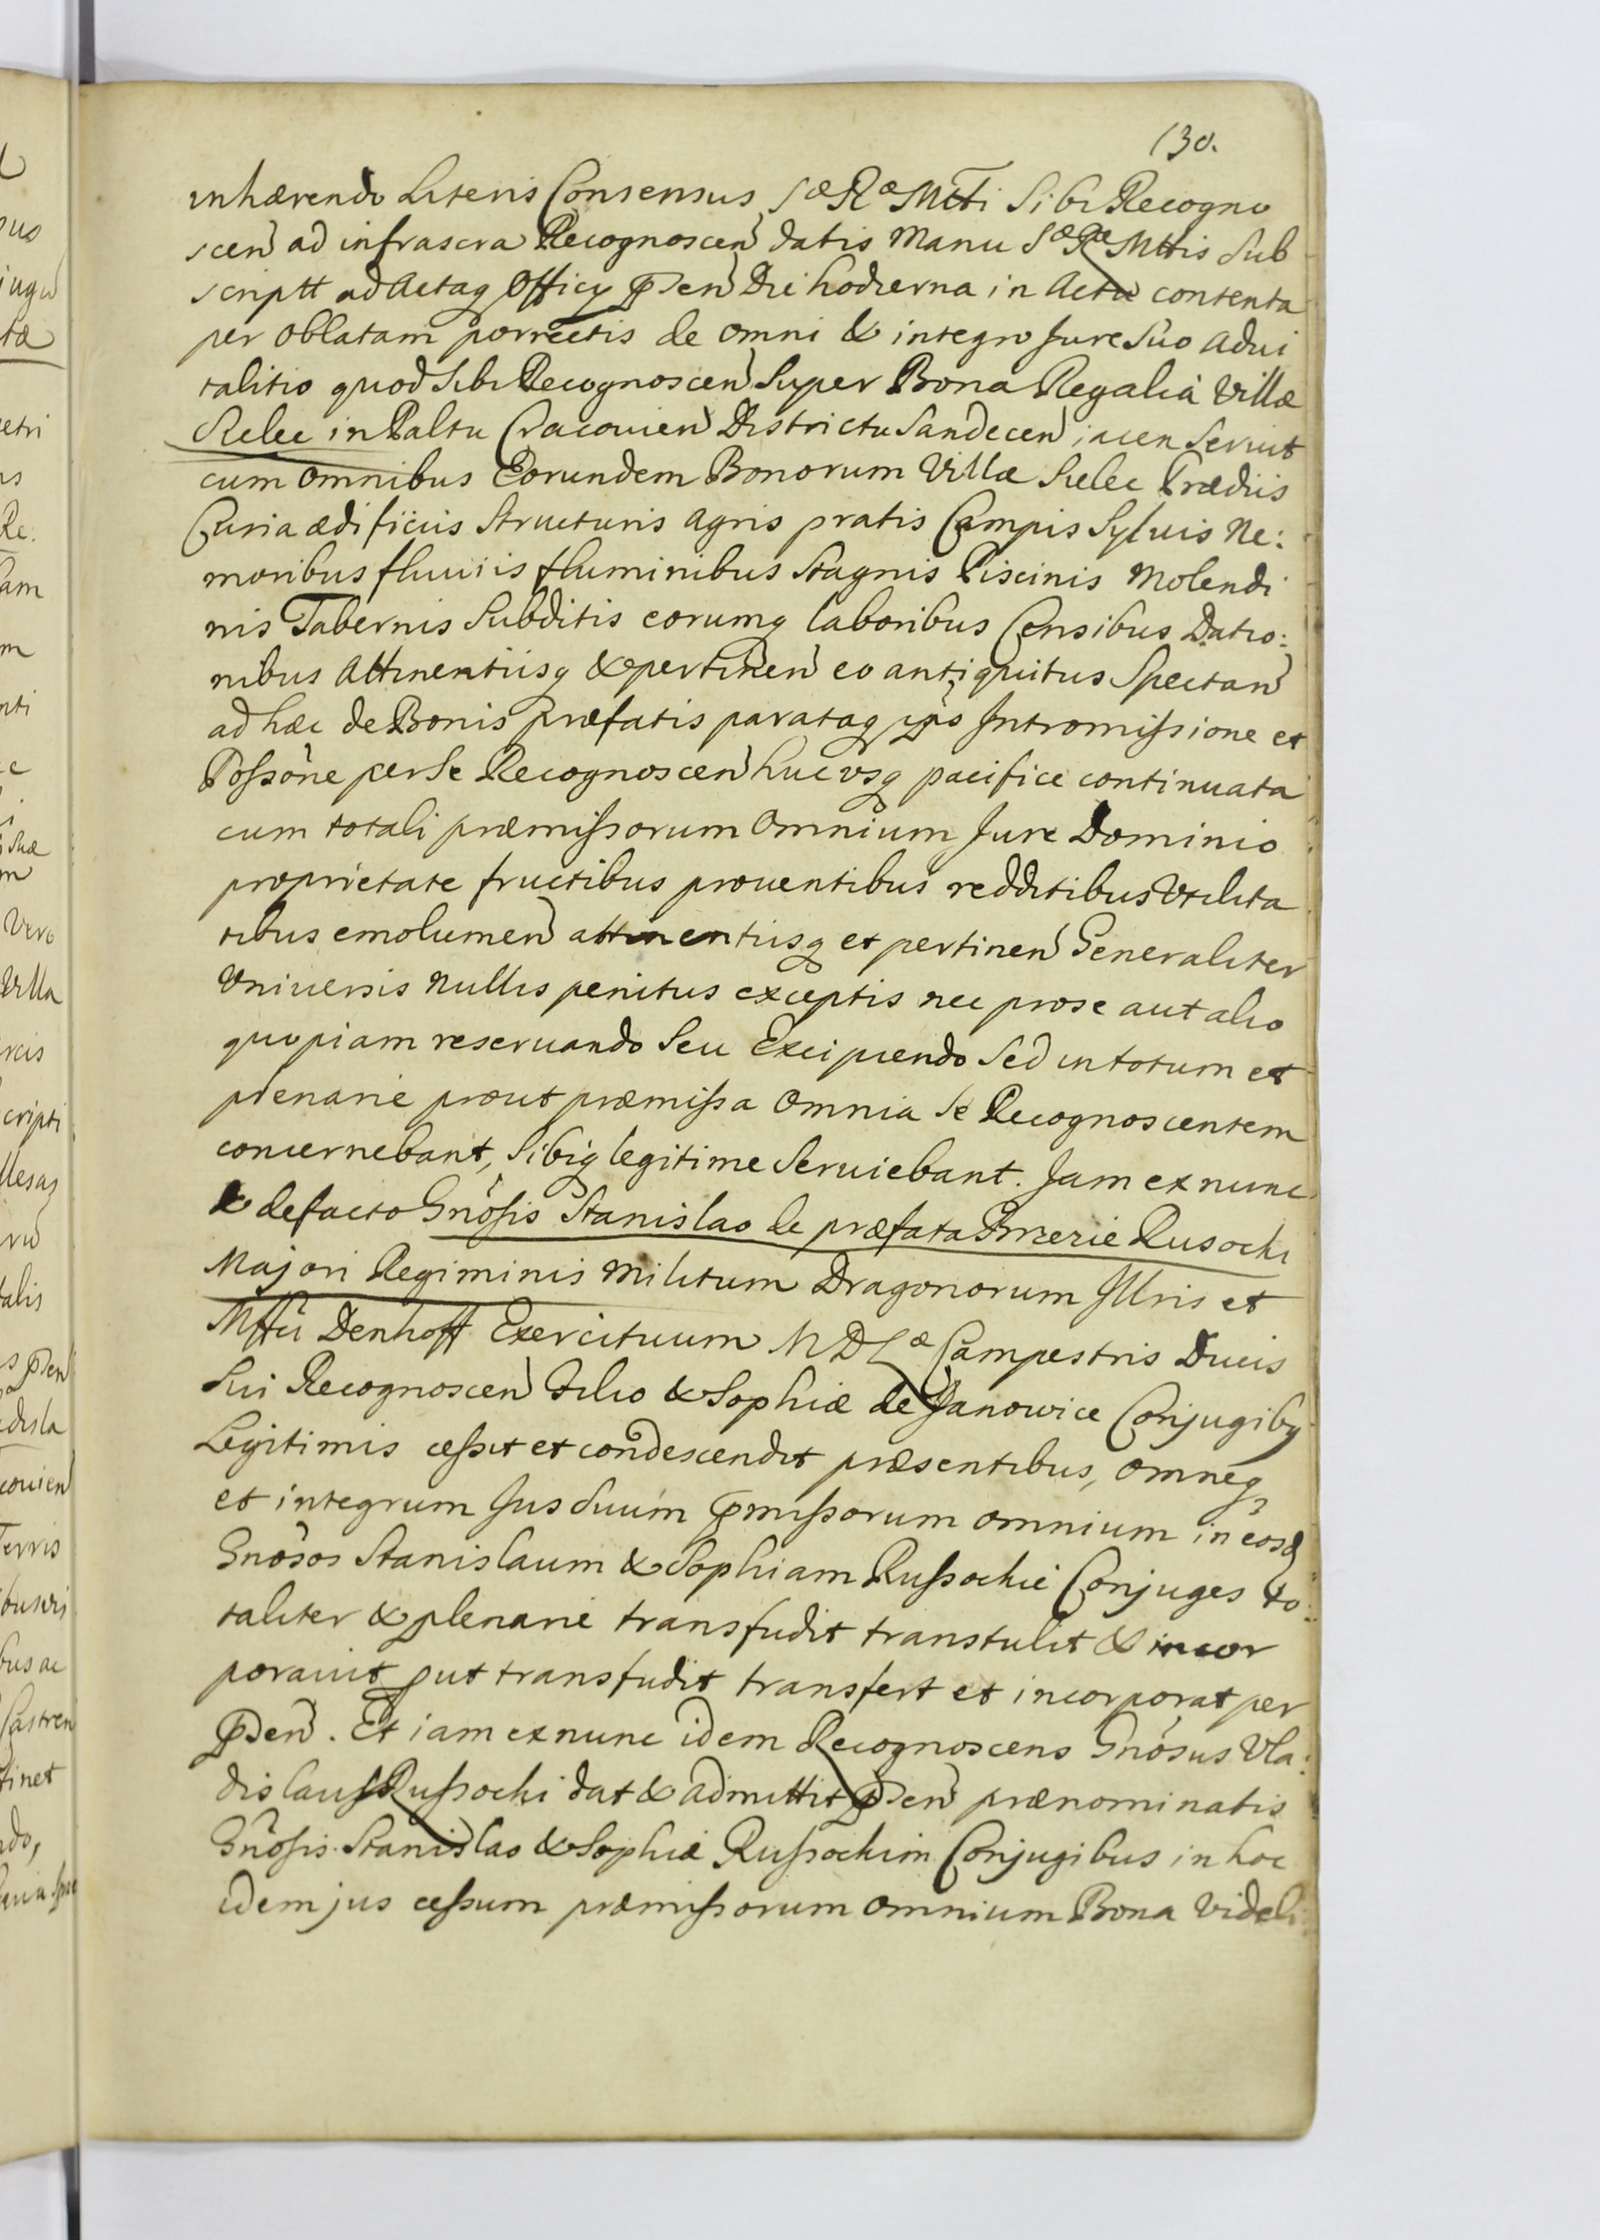 130.
inhærendo Literis Consensus Sæ Ræ Mtti Sibi Recogno
scen ad infrascra Recognoscen datis Manu Sæ Ræ Mttis Sub
scriptt ad Actaq Officy Psen Die hodierna in Actu contenta
per Oblatam porrectis de omni & integro Jure Suo Advi
talitio quod Sibi Recognoscen Super Bona Regalia Villæ
Sielec in Paltu Cracovien Districtu Sandecen iacen Serviit
cum omnibus Eorundem Bonorum Villæ Sielec Prædiis
Curia ædificiis Structuris Agris pratis Campis Sylvis Ne:
moribus fluviis fluminibus Stagnis Piscinis Molendi
nis Tabernis Subditis eorumq laboribus Censibus Datio:
nibus Attinentiisq & pertinen eo antiquitus Spectan
ad hæc de Bonis præfatis parataq ipso Intromissione et
Possone per Se Recognoscen huc vsq pacifice continuata
cum totali præmissorum Omnium Jure Dominio
proprietate fructibus proventibus redditibus Vtilita
tibus emolumen attinentiisq et pertinen Generaliter
Vniversis Nullis penitus exceptis nec pro se aut alio
quopiam reservando Seu Excipiendo Sed in totum et
plenarie prout præmissa Omnia Se Recognoscentem
concernebant, Sibiq legitime Serviebant. Jam ex nunc
& de facto Gnosis Stanislao de præfata Brzezie Rusochi
Majori Regiminis Militum Dragonorum Illris et
Mffci Denhoff Exercituum M D Læ Campestris Ducis
Sui Recognoscen Filio & Sophiæ de Janowice Conjugiby
Legitimis cessit et condescendit præsentibus, Omneq
et integrum Jus Suum pmissorum omnium in eosd
Gnosos Stanislaum & Sophiam Russochie Conjuges to:
taliter & plenarie transfudit transtulit & incor
poravit put transfudit transfert et incorporat per
Psen. Et iam ex nunc idem Recognoscens Gnosus Vla:
dislaus Russochi dat & admittit Psen prænominatis
Gnosis Stanislao & Sophiæ Russochim Conjugibus in hoc
idem jus cessum præmissorum omnium Bona Videli